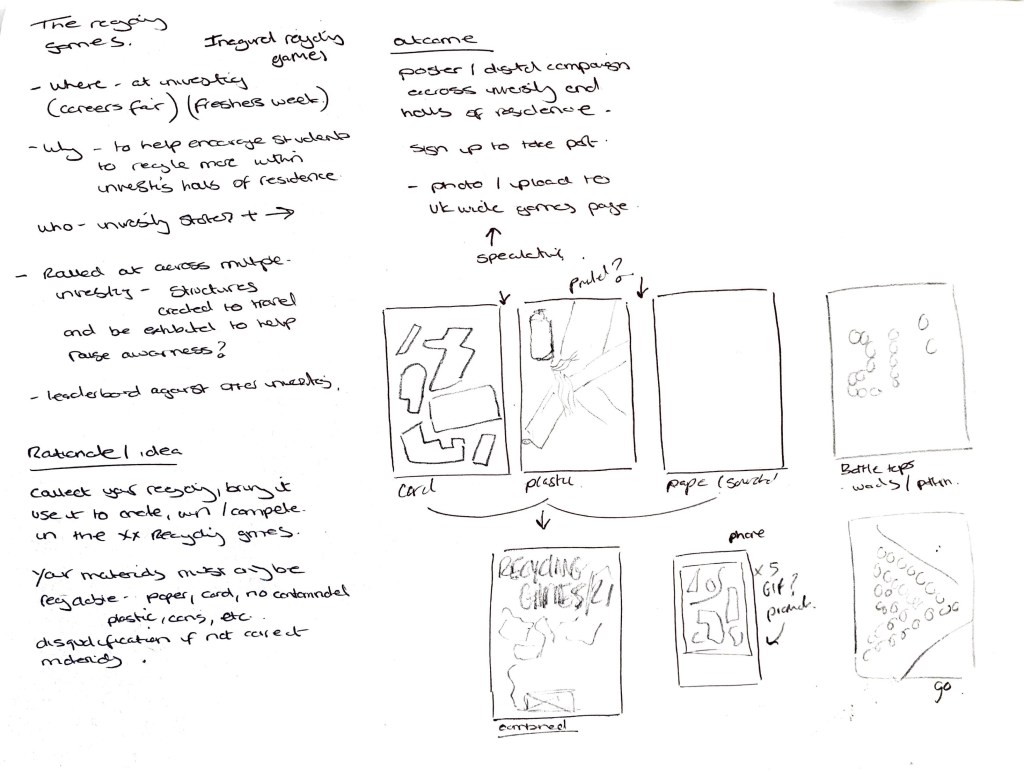 The recycling
games.
Inagural recycling
games
- where - at university
(careers fair) (freshers week)
- why - to help encourage students
to recycle more within
university's halls of residence.
who - university students + →
- Rolled out across multiple
university - structures
created to travel
and be exhibited to help
raise awarness?
- leaderboard against other universities.
Rationale / idea
collect your recycling, bring it
use it to create, win / compete.
in the xx Recycling games.
Your materials must only be
recyclable - paper, card, no contaminated
plastic, cans, etc.
disqualification if not correct
materials.
outcome
poster / digital campaign
across university and
halls of residence.
sign up to take part.
- photo / upload to
UK wide games page.
↑
speculative.
printed?
card
plastic
paper /
Bottle tops
words / pattern.
RECYCLING
GAMES/21
combined
phone
x 5
GIF?
go